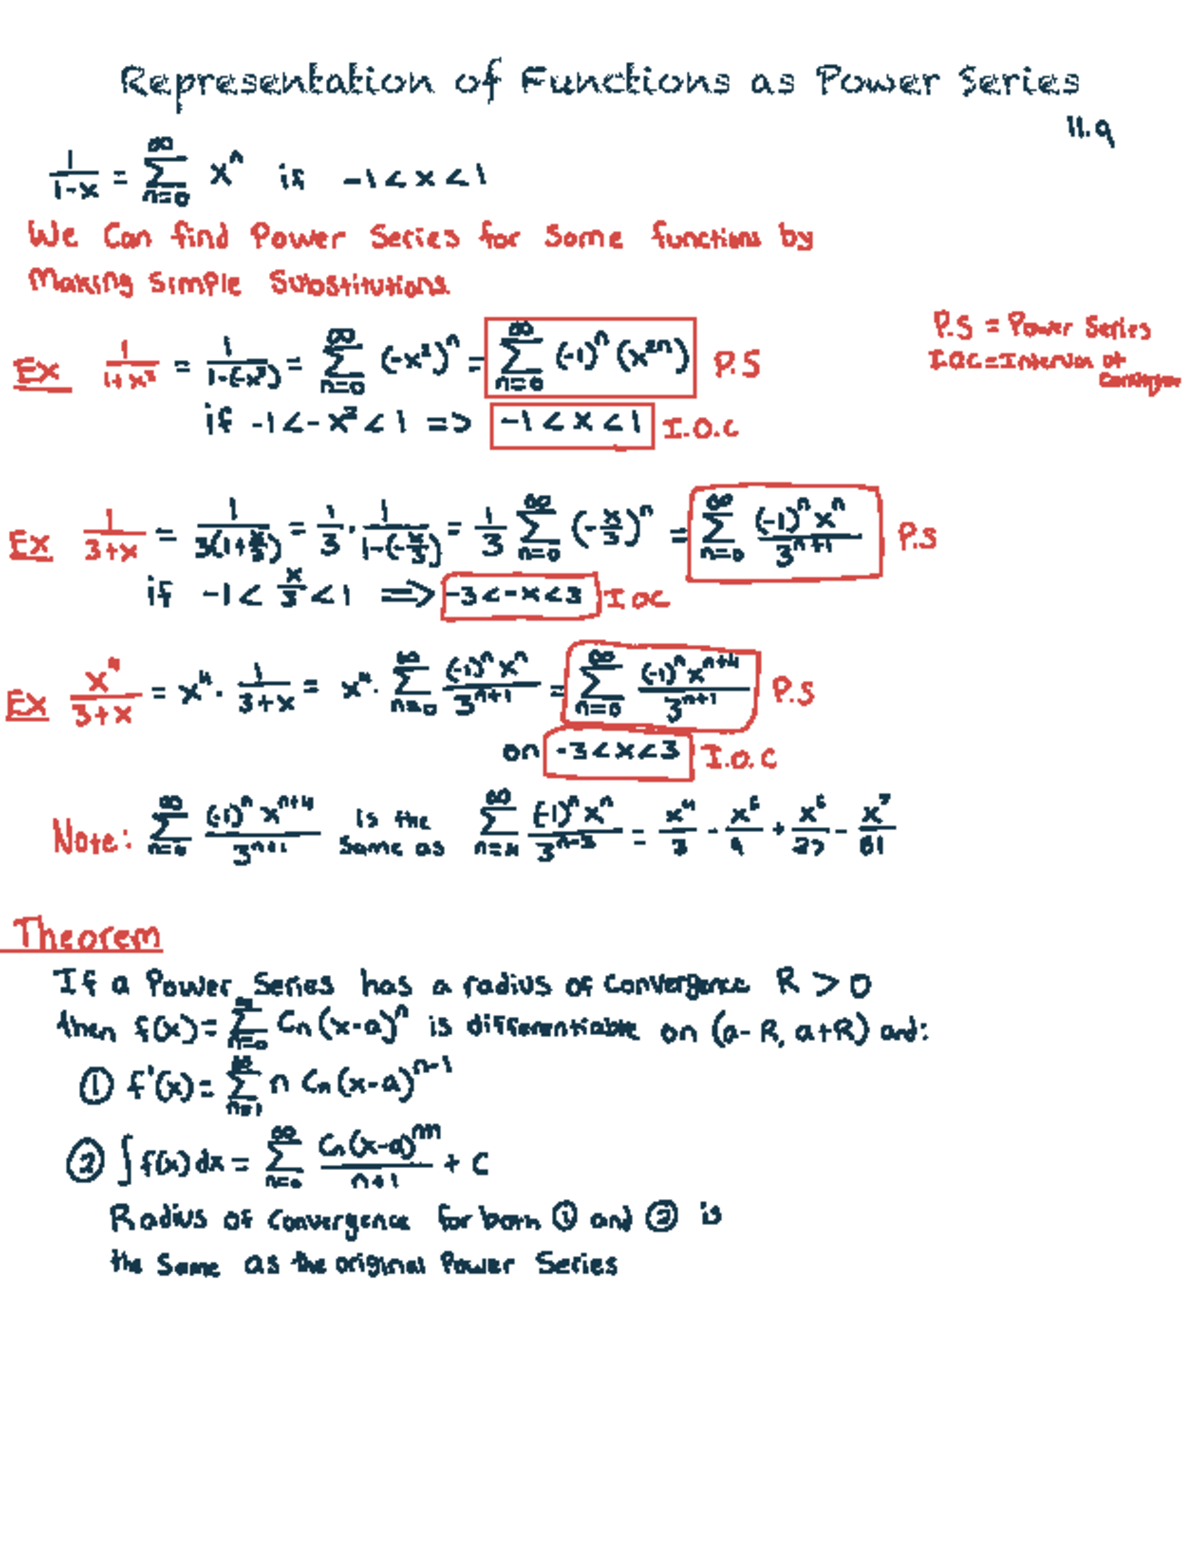 Representation of Functions as Power Series
11.9
1/(1-x) = ∞ Σ n=0 xⁿ if -1 < x < 1
We Can find Power Series for Some functions by
Making Simple Substitutions
P.S = Power Series
I.O.C = Interval of
Ex 1/(1+x²) = 1/(1-(-x²)) = ∞ Σ n=0 (-x²)ⁿ = ∞ Σ n=0 (-1)ⁿ(x²ⁿ) P.S
if -1 < -x² < 1 => -1 < x < 1 I.O.C
Ex 1/(3+x) = 1/(3(1+x/3)) = 1/3 · 1/(1-(-x/3)) = 1/3 ∞ Σ n=0 (-x/3)ⁿ = ∞ Σ n=0 (-1)ⁿxⁿ/3ⁿ⁺¹ P.S
if -1 < x/3 < 1 => -3 < -x < 3 I OC
Ex x⁴/(3+x) = x⁴ · 1/(3+x) = x⁴ · ∞ Σ n=0 (-1)ⁿxⁿ/3ⁿ⁺¹ = ∞ Σ n=0 (-1)ⁿxⁿ⁺⁴/3ⁿ⁺¹ P.S
on -3 < x < 3 I.O.C
Note: ∞ Σ n=0 (-1)ⁿxⁿ⁺⁴/3ⁿ⁺¹ is the same as ∞ Σ n=4 (-1)ⁿxⁿ/3ⁿ⁻³ = x⁴/3 - x⁵/9 + x⁶/27 - x⁷/81
Theorem
If a Power Series has a radius of convergence R > 0
then f(x) = ∞ Σ n=0 Cn(x-a)ⁿ is differentiable on (a-R, a+R) and:
① f'(x) = ∞ Σ n=1 n Cn(x-a)ⁿ⁻¹
② ∫f(x)dx = ∞ Σ n=0 Cn(x-a)ⁿ⁺¹/(n+1) + C
Radius of Convergence for both ① and ② is
the Same as the original Power Series